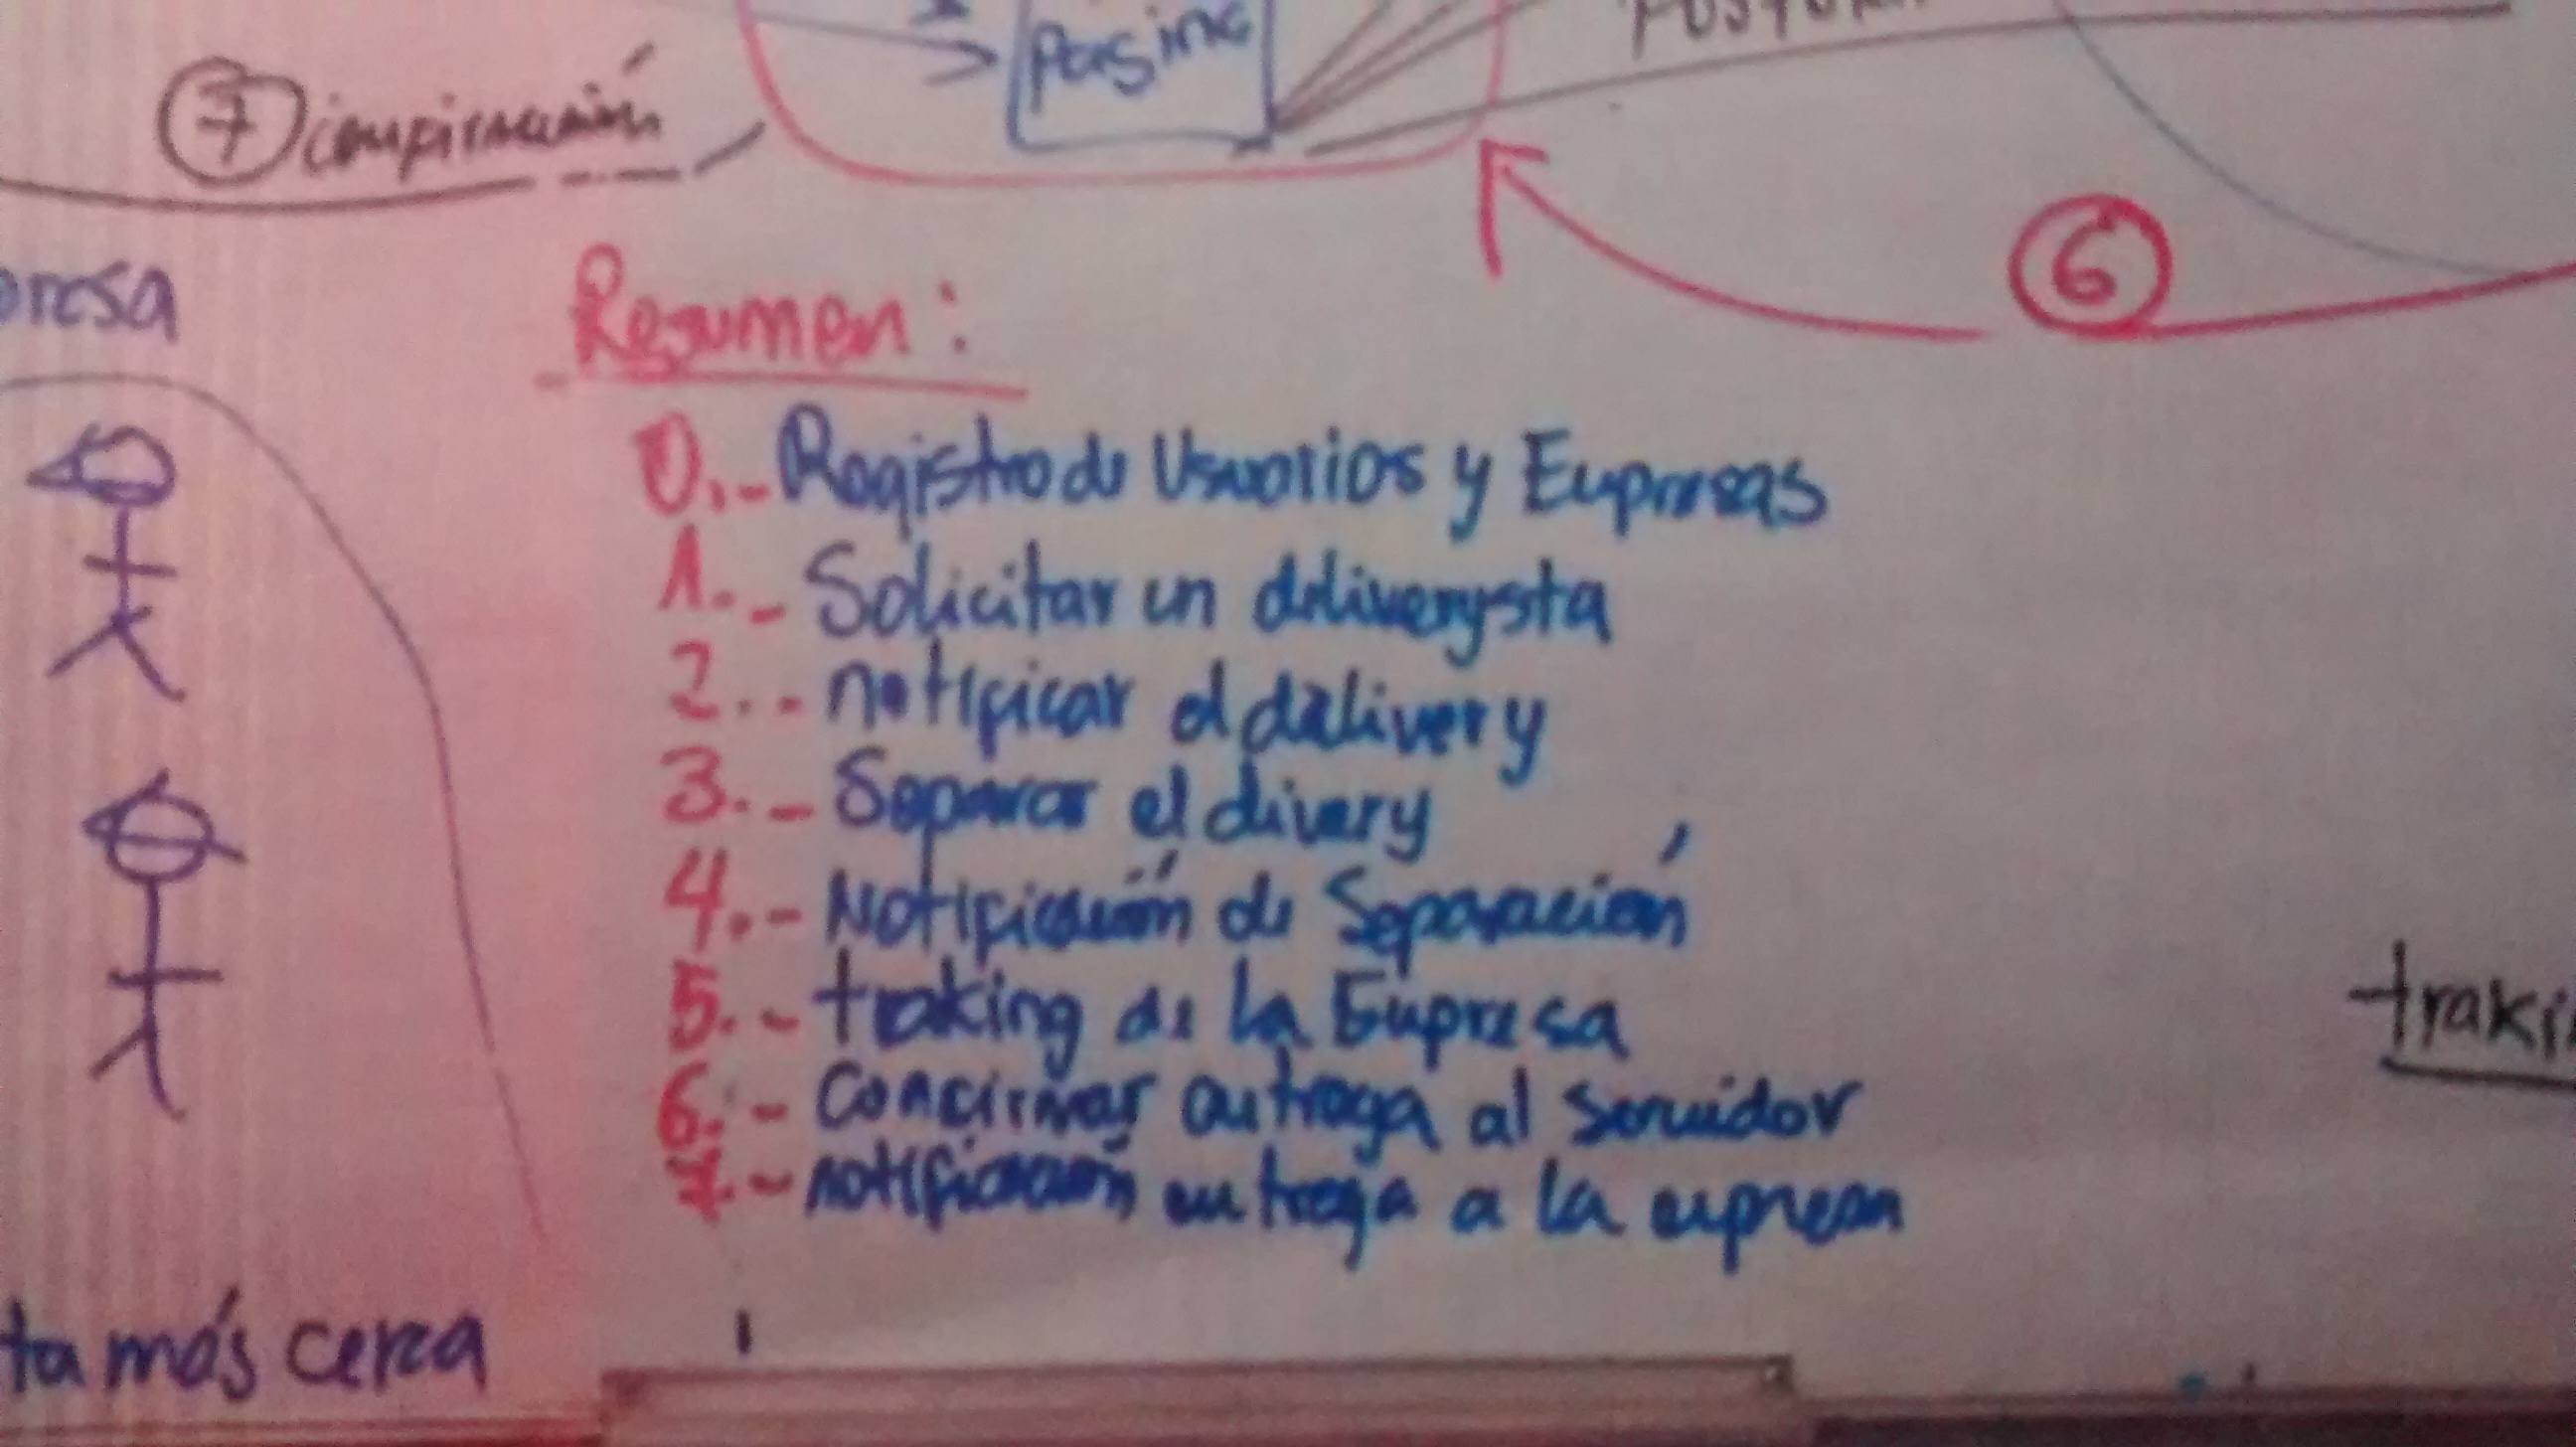 parsing
7
6
resa
Resumen:
0.- Registro de Usuarios y Empresas
1.- Solicitar un deliverysta
2.- notificar el delivery
3.- Separar el divery
4.- Notificación de Separación
5.- traking de la Empresa
6.- Confirmar entrega al servidor
7.- notificación entrega a la empresa
traki
ta más cerca